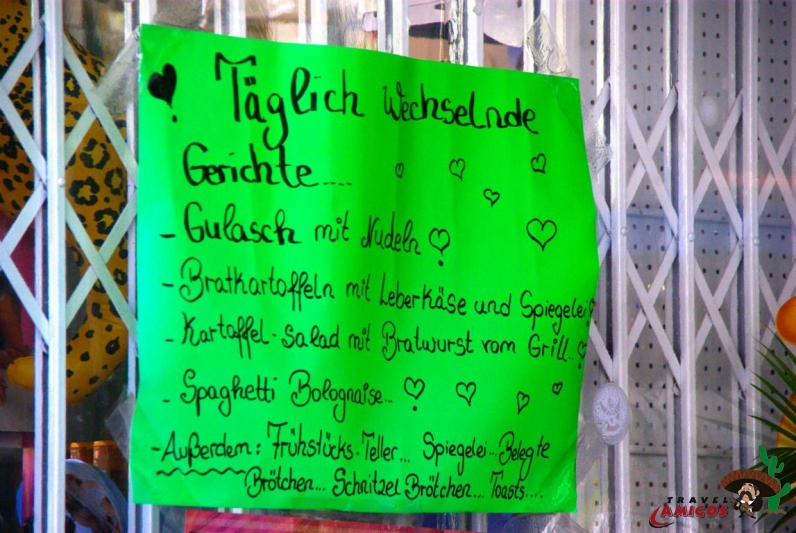 Täglich Wechselnde
Gerichte....
- Gulasch mit Nudeln
- Bratkartoffeln mit Leberkäse und Spiegelei!
- Kartoffel-Salad mit Bratwurst vom Grill..
- Spaghetti Bolognaise...
- Außerdem: Frühstücks-Teller... Spiegelei... Belegte
Brötchen... Schnitzel Brötchen... Toasts....
TRAVEL
AMIGOS